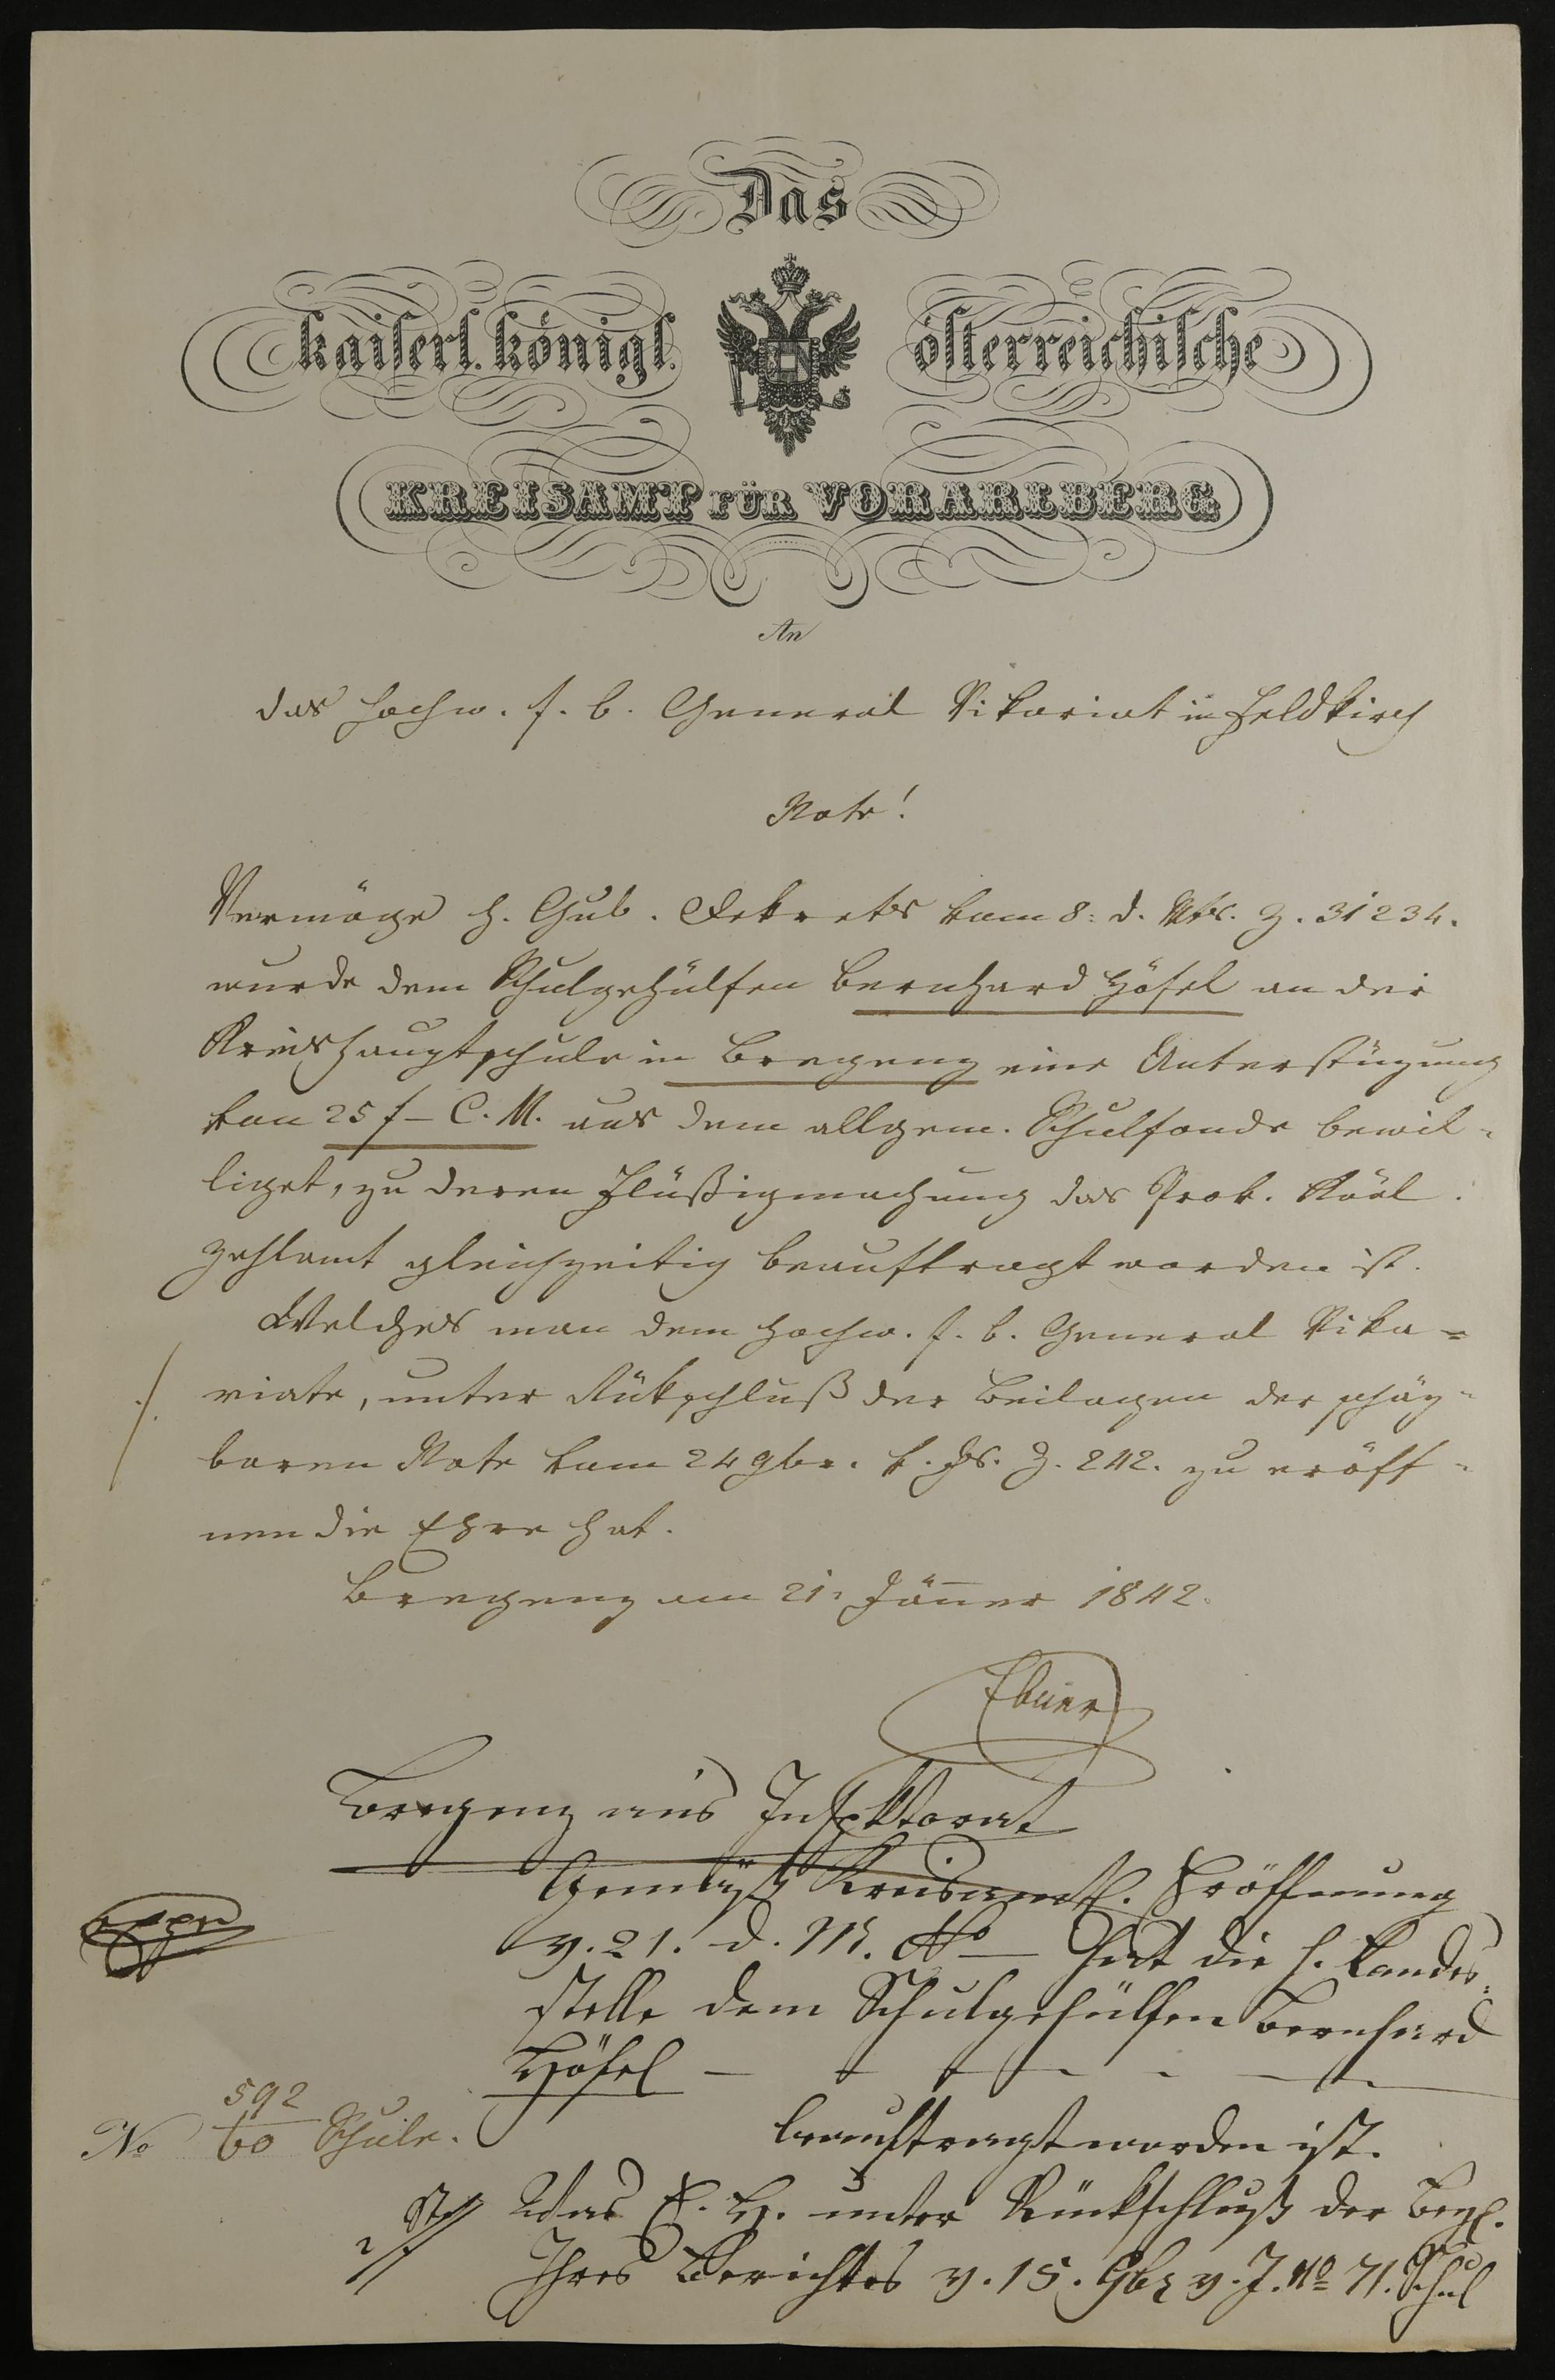 Das
kaiserl. königl. österreichische
KREISAMT FÜR VORARLBERG
An
das hochw. f. b. General Vikariat in Feldkirch
Note!
Vermöge h. Gub. Dekrets vom 8: d. Mts. Z. 31234.
wurde dem Schulgehülfen Bernhard Höfel an der
Kreishauptschule in Bregenz eine Unterstüzung
von 25 f – C. M. aus dem allgem. Schulfonde bewil-
liget, zu deren Flüßigmachung das Prov.
Zahlamt gleichzeitig beauftragt worden ist.
Welches man dem hochw. f. b. General Vika-
riate, unter Rükschluß der Beilagen der schäz-
baren Note vom 24 9ber. v. Js. Z. 242. zu eröff-
nen die Ehre hat.
Bregenz am 21. Jänner 1842.
Ebner
Bregenz ans Inspektorat
Gemäß Kreisamtl. Eröffnung
v. 21. d. M. No — hat die h. Landes-
stelle dem Schulgehülfen Bernhard
Höfel — — — — —
beauftragt worden ist.
No 592/60 Schule.
Was E. H. unter Rückschluß der Beyl.
Ihres Berichtes v. 15. 9br v. J. No 71. Schul